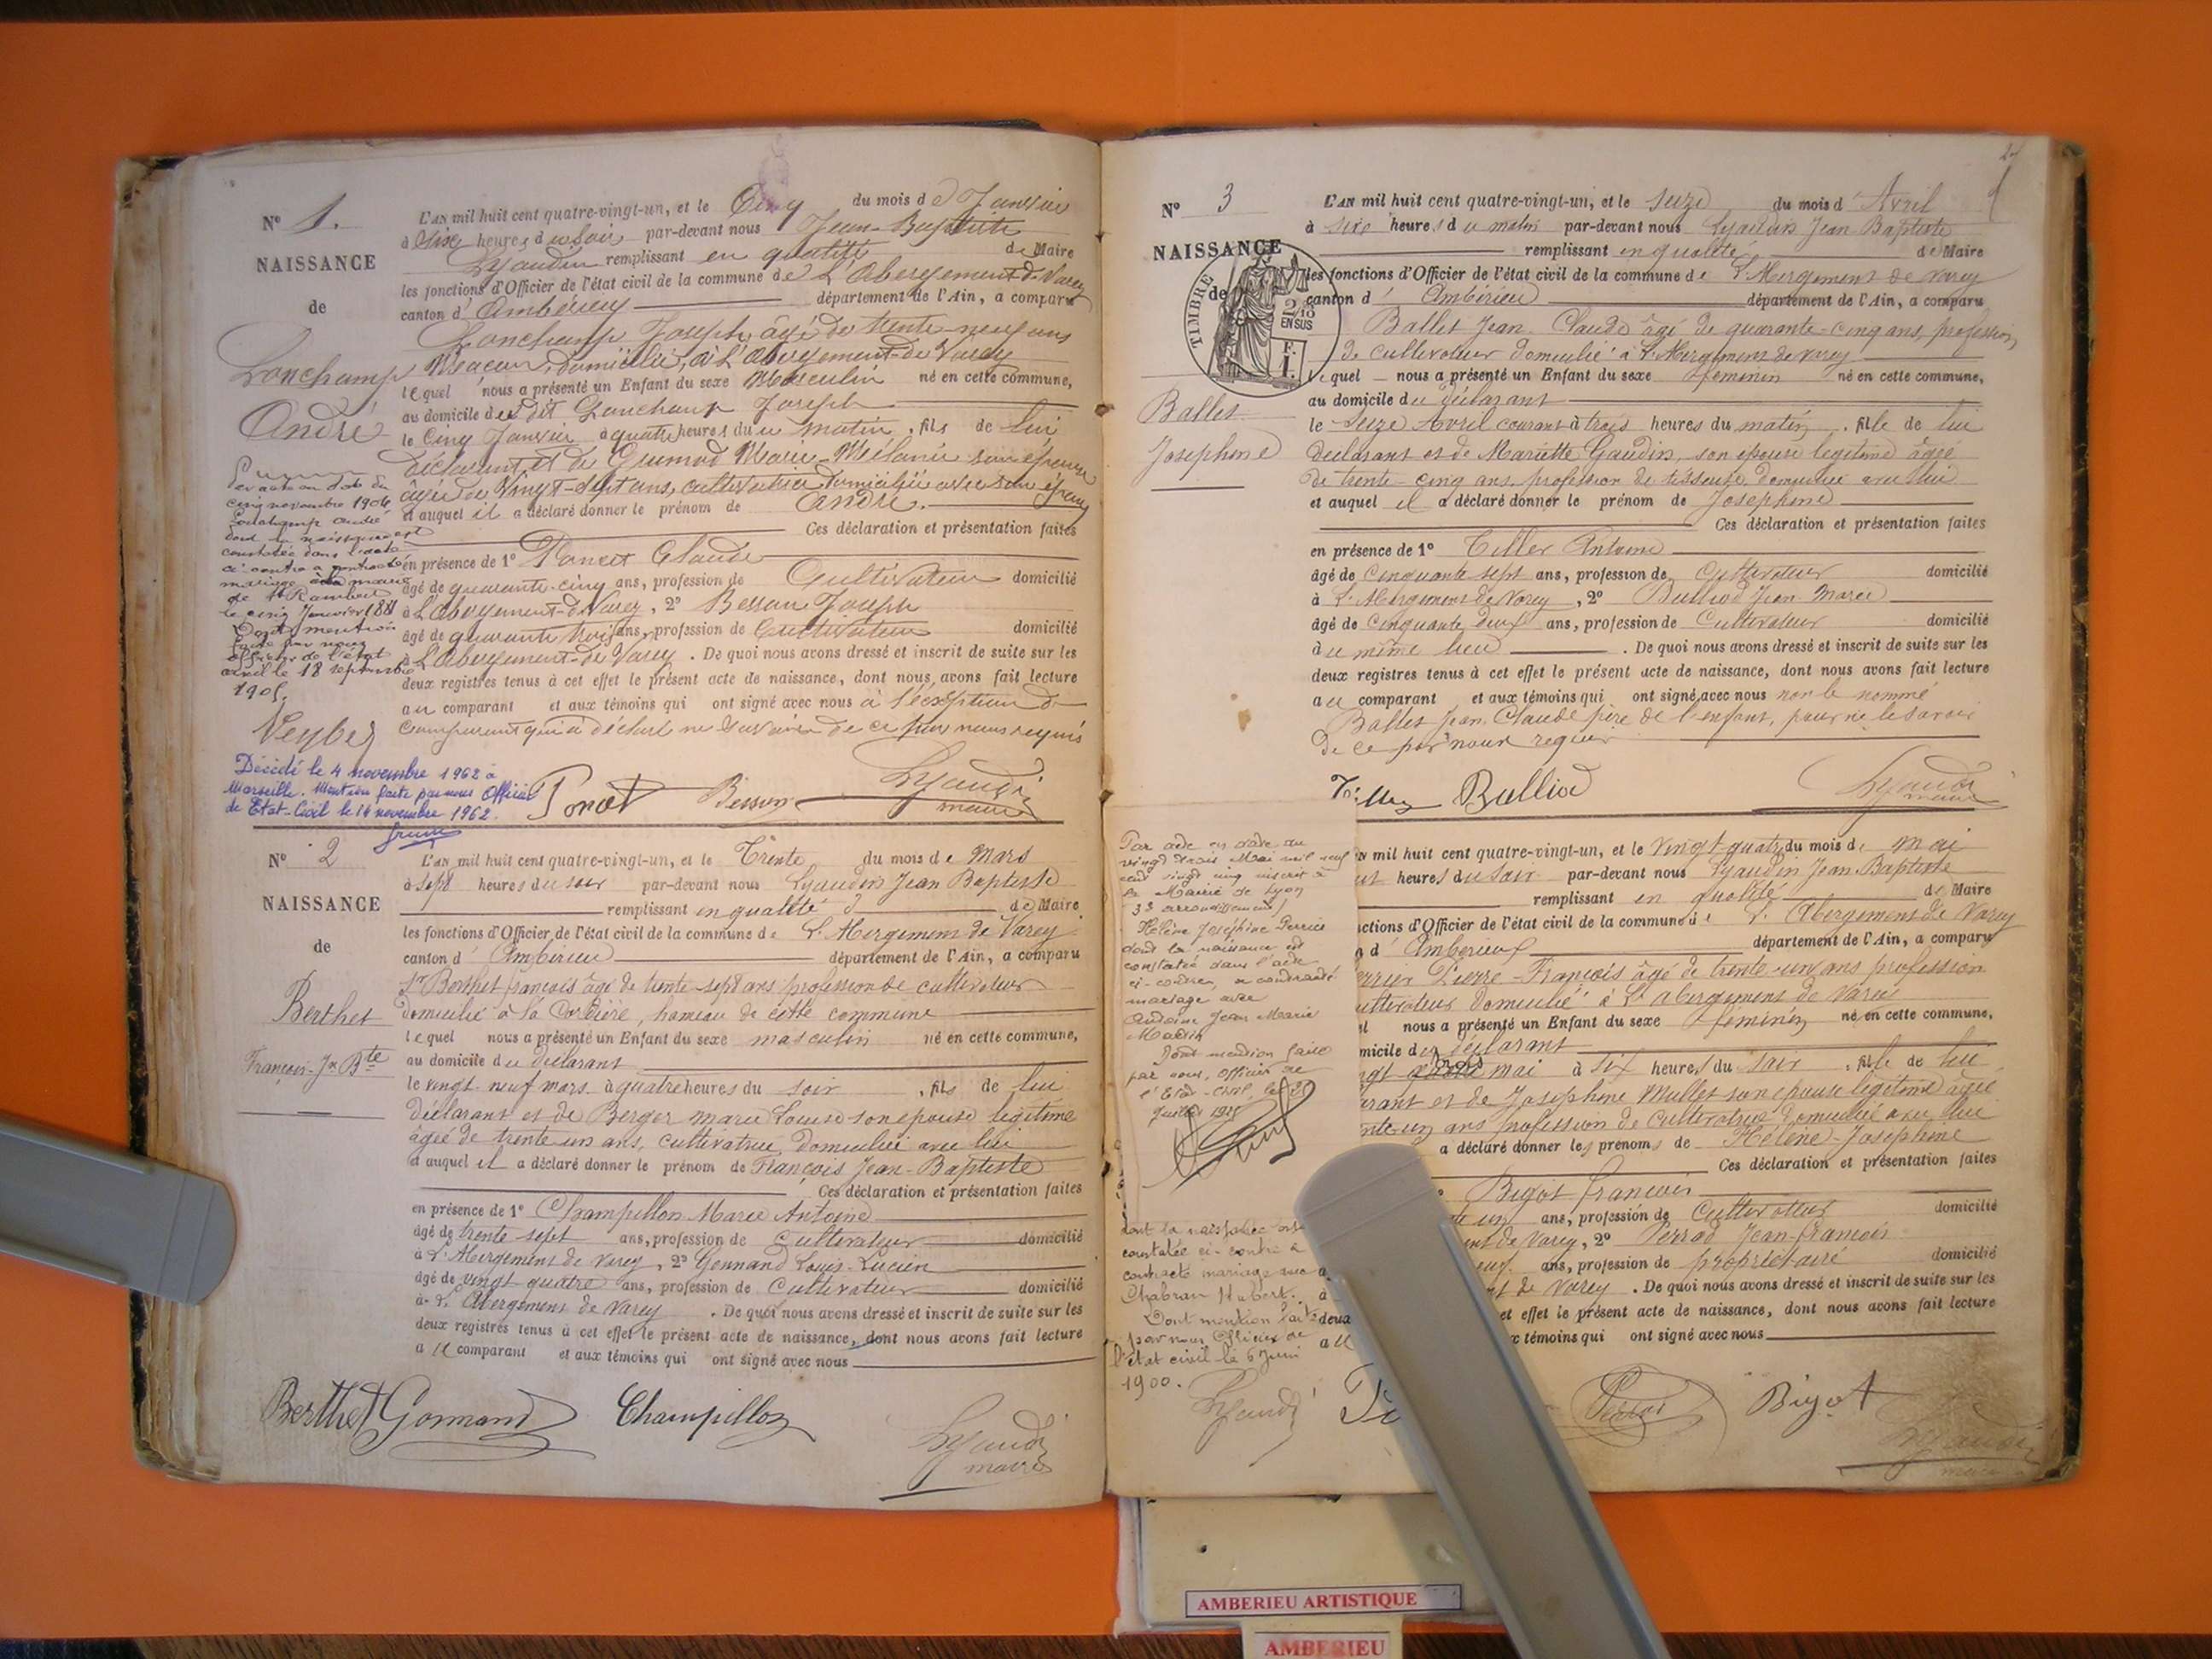 N° 1.
L'AN mil huit cent quatre-vingt-un, et le Cinq du mois d e Janvier
à Six heures du soir par-devant nous Jean-Baptiste
Lyaudin remplissant en qualité de Maire
les fonctions d'Officier de l'état civil de la commune de L'Abergement-de-Varey
canton d' Ambérieu département de l'Ain, a comparu
NAISSANCE
de
Lonchamp
André
Lonchamp Joseph, âgé de trente-neuf ans
Maçon, domicilié, à L'Abergement-de-Varey
lequel nous a présenté un Enfant du sexe Masculin né en cette commune,
au domicile du dit Lonchamp Joseph
le Cinq Janvier à quatre heures du matin, fils de lui
déclarant et de Grumod Marie-Mélanie son épouse
âgée de Vingt-sept ans, cultivatrice domiciliée avec son époux
et auquel il a déclaré donner le prénom de André.
Ces déclaration et présentation faites
en présence de 1° Poncet Claude
âgé de quarante-cinq ans, profession de Cultivateur domicilié
à L'Abergement-de-Varey, 2° Besson Joseph
âgé de quarante trois ans, profession de Cultivateur domicilié
à L'Abergement-de-Varey. De quoi nous avons dressé et inscrit de suite sur les
deux registres tenus à cet effet le présent acte de naissance, dont nous avons fait lecture
au comparant et aux témoins qui ont signé avec nous à l'exception du
comparant qui a déclaré ne savoir de ce par nous requis
en date du
cinq novembre 1904
Lonchamp André
dont la naissance est
constatée dans l'acte
ci-contre a contracté
mariage à la mairie
de St Rambert
le cinq Janvier 1881
Dont mention
faite par nous
officier de l'état
civil le 18 septembre
1905.
Décédé le 4 novembre 1962 à
Marseille. Mention faite par nous Officier
de Etat-Civil le 14 novembre 1962.
Poncet Besson Lyaudin
maire
N° 2
L'AN mil huit cent quatre-vingt-un, et le Trente du mois de Mars
à sept heures du soir par-devant nous Lyaudin Jean Baptiste
remplissant en qualité de Maire
les fonctions d'Officier de l'état civil de la commune de L'Abergement de Varey
canton d' Ambérieu département de l'Ain, a comparu
NAISSANCE
de
Berthet
François-Jn Bte
Sr Berthet françois âgé de trente sept ans profession de cultivateur
domicilié à la Cordière, hameau de cette commune
lequel nous a présenté un Enfant du sexe masculin né en cette commune,
au domicile du déclarant
le vingt-neuf mars à quatre heures du soir, fils de lui
déclarant et de Berger marie Louise son épouse légitime
âgée de trente un ans, cultivatrice domiciliée avec lui
et auquel il a déclaré donner le prénom de François Jean-Baptiste
Ces déclaration et présentation faites
en présence de 1° Champillon Marie Antoine
âgé de trente sept ans, profession de Cultivateur domicilié
à L'Abergement de Varey, 2° Gonnand Louis-Lucien
âgé de vingt quatre ans, profession de Cultivateur domicilié
à L'Abergement de Varey. De quoi nous avons dressé et inscrit de suite sur les
deux registres tenus à cet effet le présent acte de naissance, dont nous avons fait lecture
au comparant et aux témoins qui ont signé avec nous
Berthet Gonnand Champillon Lyaudin
maire
N° 3
L'AN mil huit cent quatre-vingt-un, et le seize du mois d' Avril
à six heures du matin par-devant nous Lyaudin Jean Baptiste
remplissant en qualité de Maire
les fonctions d'Officier de l'état civil de la commune de L'Abergement de Varey
canton d' Ambérieu département de l'Ain, a comparu
NAISSANCE
de
TIMBRE
2/10
EN SUS
F.
1.
Ballet
Josephine
Ballet Jean-Claude âgé de quarante-cinq ans, profession
de cultivateur domicilié à L'Abergement de Varey
lequel nous a présenté un Enfant du sexe féminin né en cette commune,
au domicile du déclarant
le seize Avril courant à trois heures du matin, fille de lui
déclarant et de Mariette Gaudin, son épouse légitime âgée
de trente-cinq ans, profession de tisseuse domiciliée avec lui
et auquel il a déclaré donner le prénom de Josephine
Ces déclaration et présentation faites
en présence de 1° Tiller Antoine
âgé de Cinquante sept ans, profession de Cultivateur domicilié
à L'Abergement de Varey, 2° Bulliod Jean Marie
âgé de Cinquante deux ans, profession de Cultivateur domicilié
au même lieu. De quoi nous avons dressé et inscrit de suite sur les
deux registres tenus à cet effet le présent acte de naissance, dont nous avons fait lecture
au comparant et aux témoins qui ont signé avec nous non le nommé
Ballet Jean-Claude père de l'enfant, pour ne le savoir
de ce par nous requis
Tiller Bulliod Lyaudin
maire
Par acte en date du
vingt trois Mai mil neuf
cent vingt cinq inscrit à
la Mairie de Lyon
3e arrondissement
Hélène Joséphine Perrier
dont la naissance est
constatée dans l'acte
ci-contre, a contracté
mariage avec
Antoine Jean Marie
Dont mention faite
par nous, officier de
l'Etat-Civil, le
Juillet 1925
dont la naissance est
constatée ci-contre a
contracté mariage avec
Chabran Hubert.
Dont mention faite
par nous Officier de
l'état civil le 6 Juin
1900.
Lyaudin
mil huit cent quatre-vingt-un, et le vingt quatre du mois de mai
heures du soir par-devant nous Lyaudin Jean Baptiste
remplissant en qualité de Maire
ctions d'Officier de l'état civil de la commune de L'Abergement de Varey
d' Amberieux département de l'Ain, a comparu
errier Pierre-François âgé de trente-un ans profession
ultivateur domicilié à L'abergement de Varey
nous a présenté un Enfant du sexe féminin né en cette commune,
micile du déclarant
ngt trois mai à six heures du soir, fille de lui
arant et de Josephine Mullet son épouse légitime âgée
nte-un ans profession de Cultivatrice domiciliée avec lui
a déclaré donner les prénoms de Hélène-Josephine
Ces déclaration et présentation faites
Bigot françois
te un ans, profession de Cultivateur domicilié
ent de Varey, 2° Perrad Jean-francois
ans, profession de propriétaire domicilié
nt de Varey. De quoi nous avons dressé et inscrit de suite sur les
deux
et effet le présent acte de naissance, dont nous avons fait lecture
au
x témoins qui ont signé avec nous
Bigot
AMBERIEU ARTISTIQUE
AMBERIEU